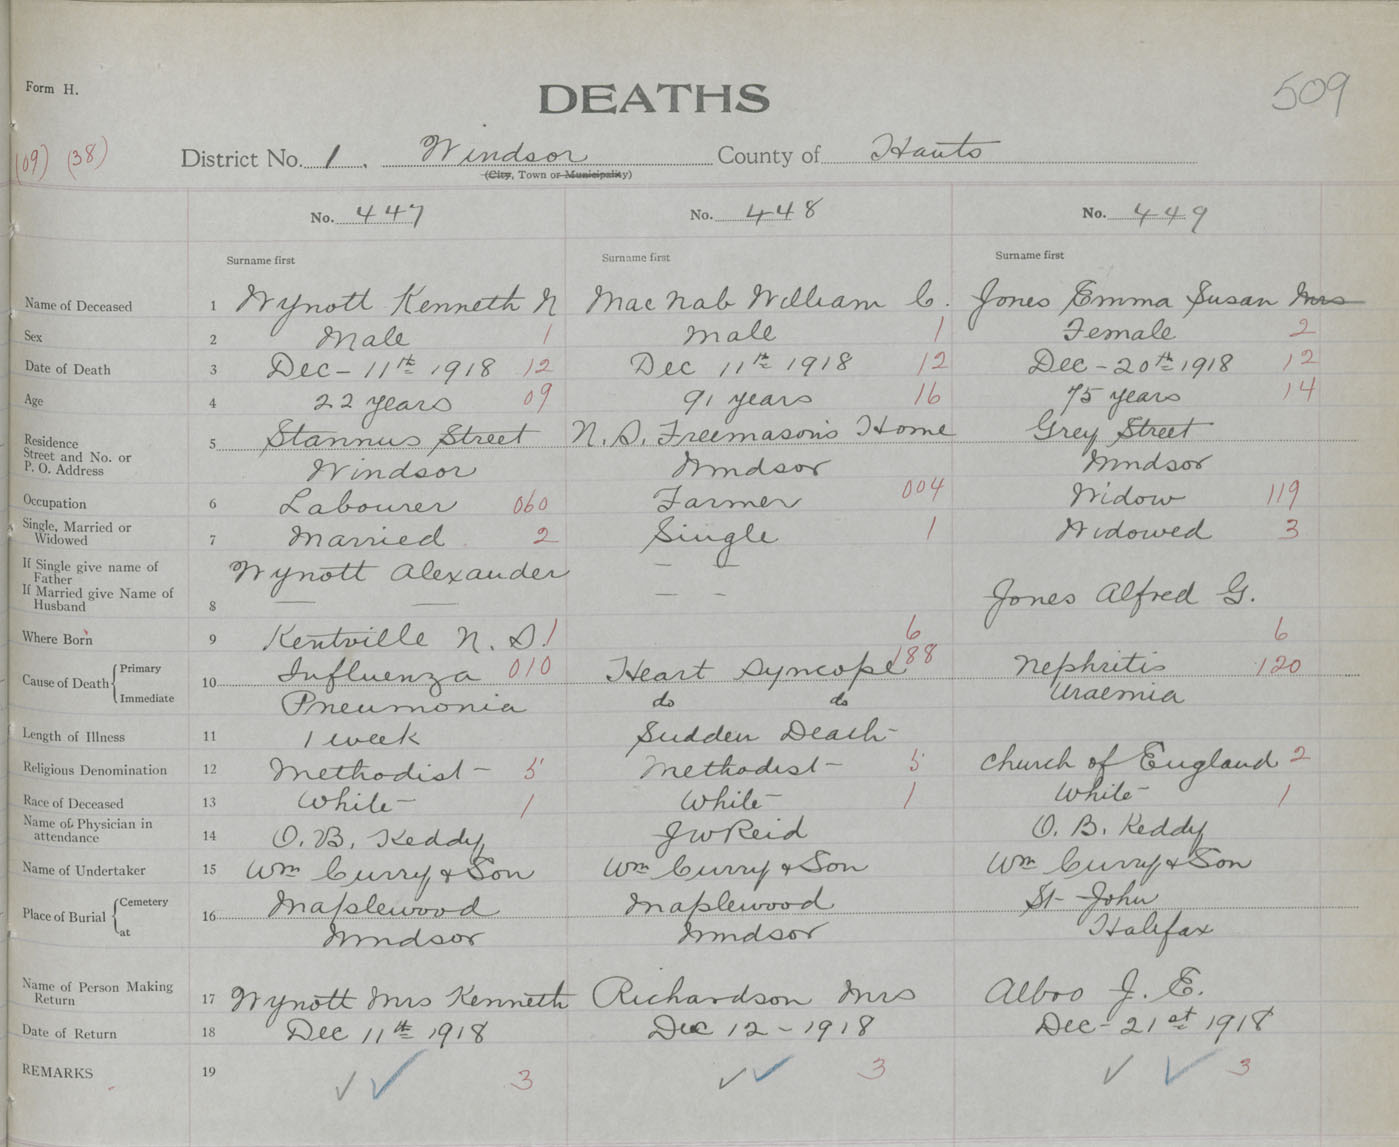 Form H.
DEATHS
509
(09) (38)
District No. 1. Windsor County of Hants
(City, Town or Municipality)
No. 447 No. 448 No. 449
Surname first Surname first Surname first
Name of Deceased 1 Wynott Kenneth N MacNab William C. Jones Emma Susan Mrs
Sex 2 Male 1 Male 1 Female 2
Date of Death 3 Dec - 11th 1918 12 Dec 11th 1918 12 Dec - 20th 1918 12
Age 4 22 years 09 91 years 16 75 years 14
Residence
Street and No. or
P. O. Address
5 Stannus Street N.S. Freemason's Home Grey Street
Windsor Windsor Windsor
Occupation 6 Labourer 060 Farmer 004 Widow 119
Single, Married or
Widowed 7 Married 2 Single 1 Widowed 3
If Single give name of
Father
Wynott Alexander — —
If Married give Name of
Husband 8 — — — - Jones Alfred G.
Where Born 9 Kentville N.S. 1 6 6
Cause of Death { Primary
Immediate
10 Influenza 010 Heart Syncope 188 Nephritis 120
Pneumonia do do Uraemia
Length of Illness 11 1 week Sudden Death -
Religious Denomination 12 Methodist - 5 Methodist - 5 Church of England 2
Race of Deceased 13 White - 1 White - 1 White - 1
Name of Physician in
attendance 14 O. B. Keddy J W Reid O. B. Keddy
Name of Undertaker 15 Wm Curry & Son Wm Curry & Son Wm Curry & Son
Place of Burial { Cemetery
at
16 Maplewood Maplewood St - John
Windsor Windsor Halifax
Name of Person Making
Return 17 Wynott Mrs Kenneth Richardson Mrs Albro J. E.
Date of Return 18 Dec 11th 1918 Dec 12 - 1918 Dec - 21st 1918
REMARKS 19 ✓ ✓ 3 ✓ ✓ 3 ✓ ✓ 3